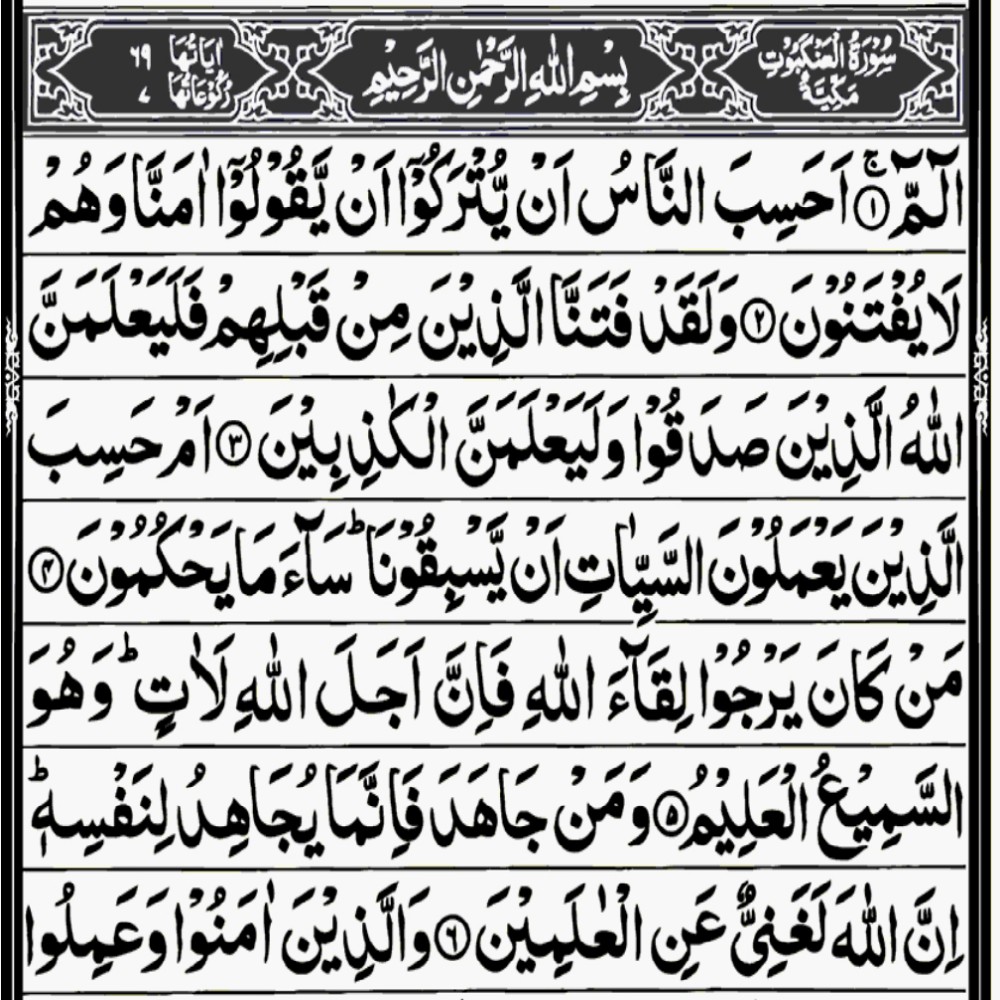 سُوْرَةُ الْعَنْكَبُوْتِ مَكِّيَّةٌ
بِسْمِ اللهِ الرَّحْمٰنِ الرَّحِيْمِ
اٰيَاتُهَا ٦٩
رُكُوْعَاتُهَا ٧
الٓمّٓ ۚ﴿١﴾ اَحَسِبَ النَّاسُ اَنْ يُّتْرَكُوْٓا اَنْ يَّقُوْلُوْٓا اٰمَنَّا وَهُمْ
لَا يُفْتَنُوْنَ ﴿٢﴾ وَلَقَدْ فَتَنَّا الَّذِيْنَ مِنْ قَبْلِهِمْ فَلَيَعْلَمَنَّ
اللهُ الَّذِيْنَ صَدَقُوْا وَلَيَعْلَمَنَّ الْكٰذِبِيْنَ ﴿٣﴾ اَمْ حَسِبَ
الَّذِيْنَ يَعْمَلُوْنَ السَّيِّاٰتِ اَنْ يَّسْبِقُوْنَا ؕ سَآءَ مَا يَحْكُمُوْنَ ﴿٤﴾
مَنْ كَانَ يَرْجُوْا لِقَآءَ اللهِ فَاِنَّ اَجَلَ اللهِ لَاٰتٍ ؕ وَهُوَ
السَّمِيْعُ الْعَلِيْمُ ﴿٥﴾ وَمَنْ جَاهَدَ فَاِنَّمَا يُجَاهِدُ لِنَفْسِهٖ ؕ
اِنَّ اللهَ لَغَنِيٌّ عَنِ الْعٰلَمِيْنَ ﴿٦﴾ وَالَّذِيْنَ اٰمَنُوْا وَعَمِلُوا